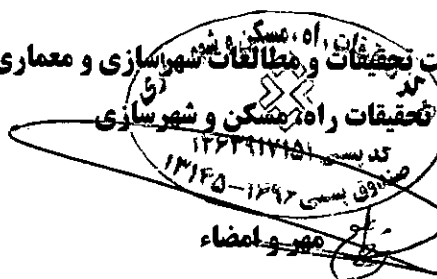 ت تحقیقات و مطالعات شهرسازی و معماری
تحقیقات راه، مسکن و شهرسازی
کد پستی ۱۴۶۳۹۱۷۱۵۱
صندوق پستی ۱۶۹۶–۱۳۱۴۵
مهر و امضاء